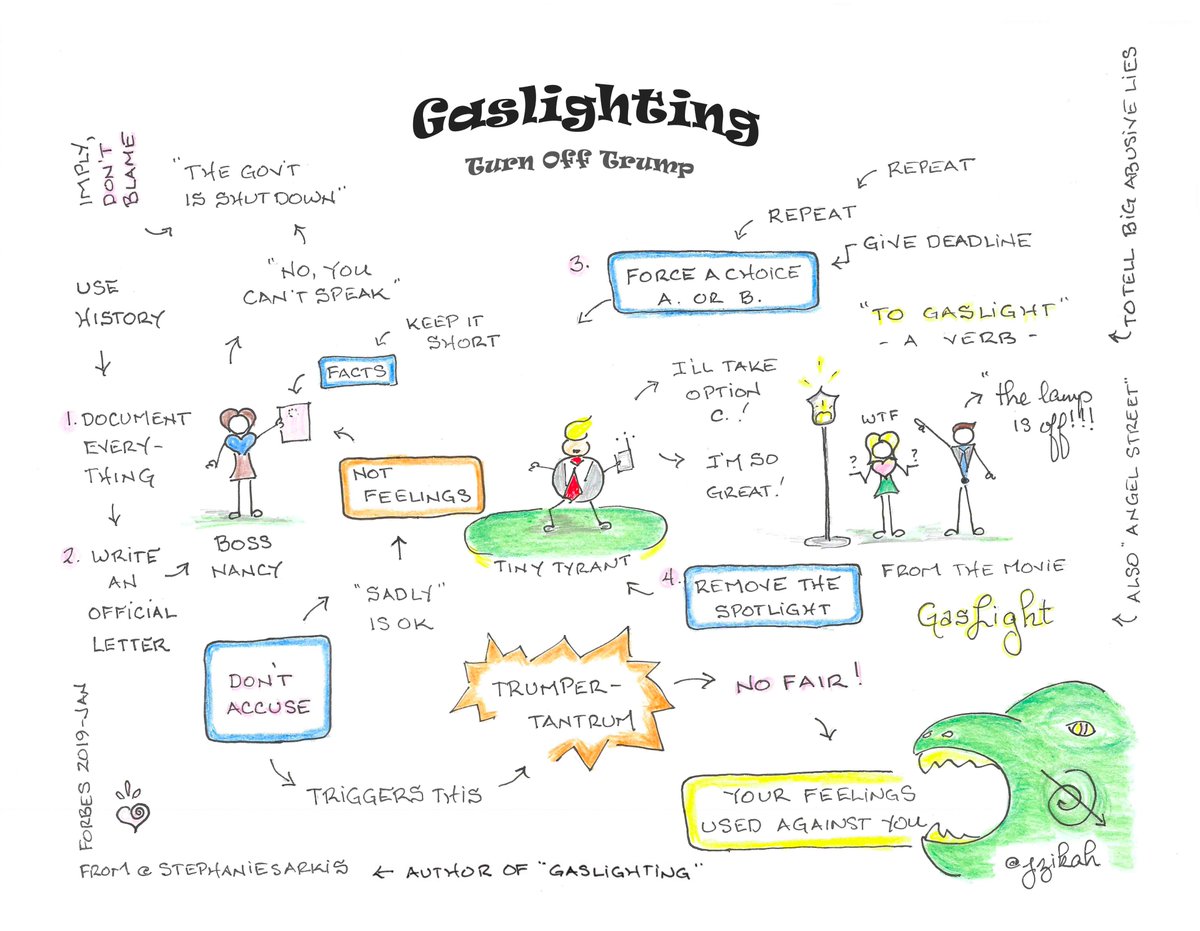 Gaslighting
Turn Off Trump
IMPLY,
DON'T
BLAME
"THE GOV'T
IS SHUT DOWN"
"NO, YOU
CAN'T SPEAK"
USE
HISTORY
KEEP IT
SHORT
FACTS
1. DOCUMENT
EVERY-
THING
2. WRITE
AN
OFFICIAL
LETTER
BOSS
NANCY
NOT
FEELINGS
"SADLY"
IS OK
DON'T
ACCUSE
TRIGGERS THIS
TRUMPER-
TANTRUM
NO FAIR!
YOUR FEELINGS
USED AGAINST YOU
REPEAT
REPEAT
GIVE DEADLINE
3. FORCE A CHOICE
A. OR B.
I'LL TAKE
OPTION
C.!
I'M SO
GREAT!
TINY TYRANT
4. REMOVE THE
SPOTLIGHT
"TO GASLIGHT"
- A VERB -
WTF
? ?
"the lamp
is off!!!
FROM THE MOVIE
GasLight
TO TELL BIG ABUSIVE LIES
ALSO "ANGEL STREET"
@jzikah
FORBES 2019-JAN
FROM @STEPHANIESARKIS ← AUTHOR OF "GASLIGHTING"